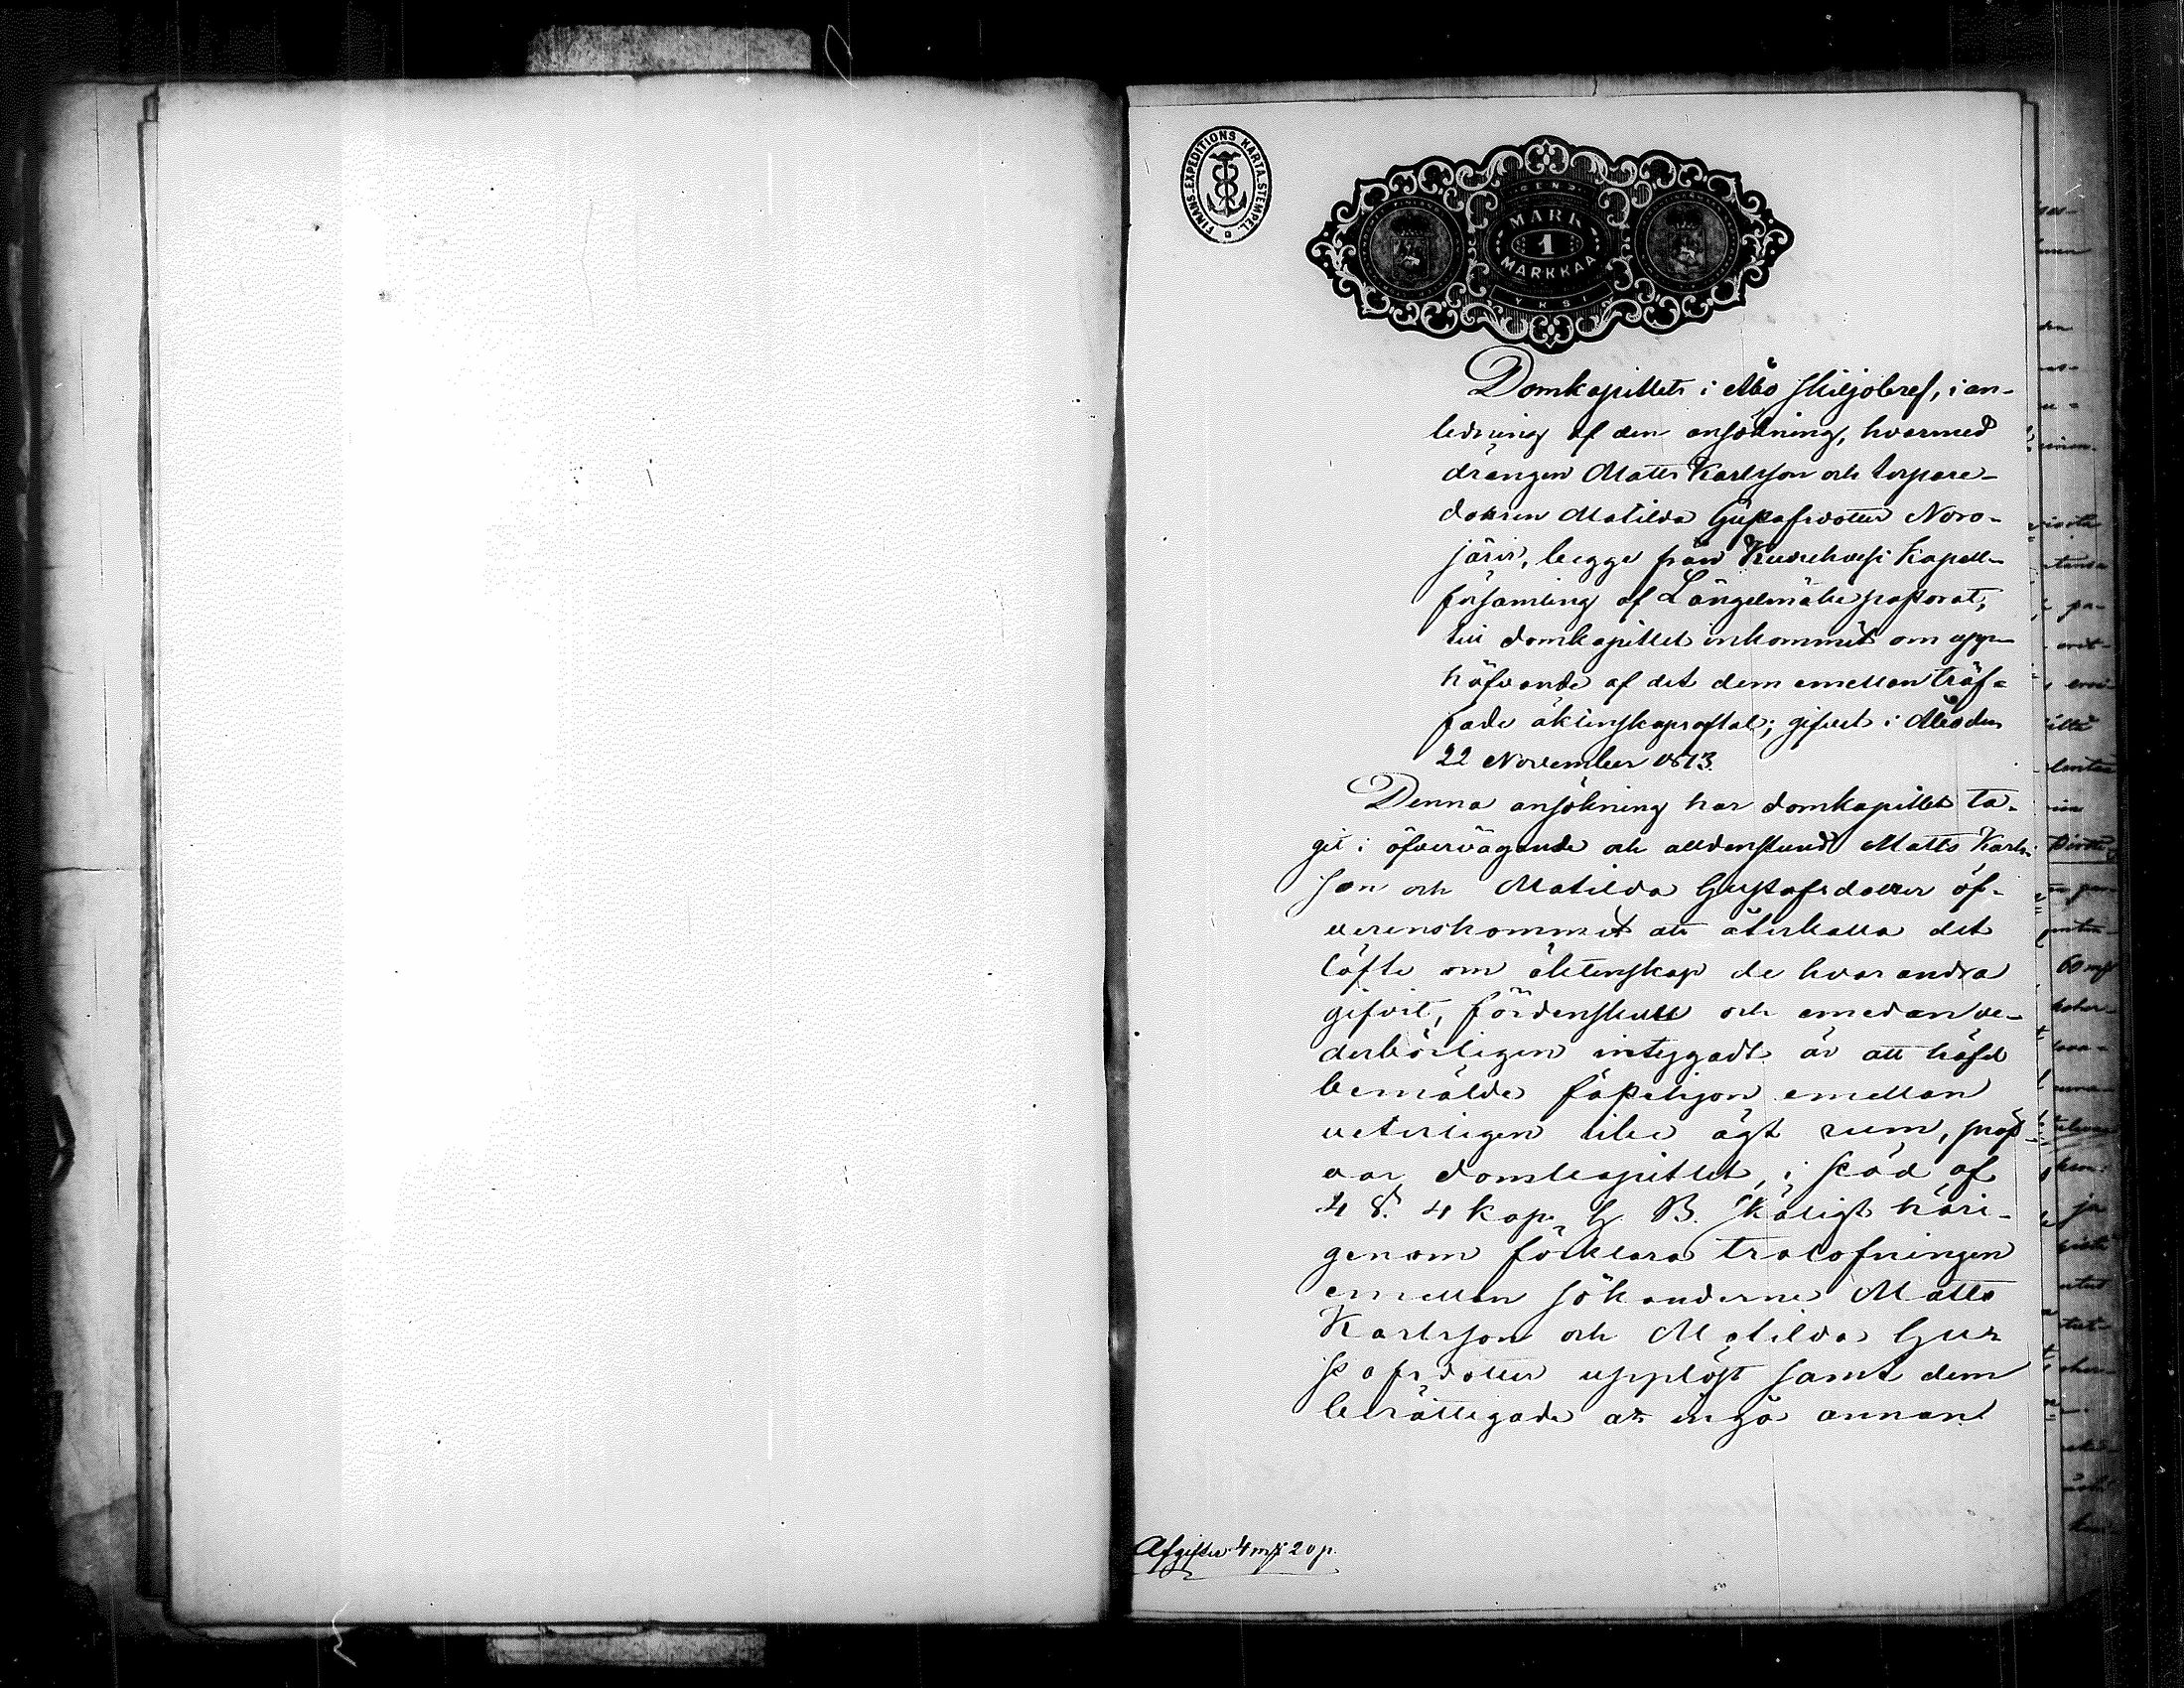 FINANS.EXPEDITIONS KARTA.STEMPEL
EN
MARK
1
MARKKAA
YKSI
Domkapitlets i Åbo skiljobref, i an-
ledning af den ansökning, hvarmed
drängen Matts Karlsson och torpare-
dottren Matilda Gustafsdotter Noro-
järvi, begge från Kuorehvesi kapell-
församling af Längelmäki pastorat,
till domkapitlet inkommit om upp-
häfvande af det dem emellan träf-
fade äktenskapsaftal; gifvet i Åbo den
22 November 1873.
Denna ansökning har domkapitlet ta-
git i öfvervägande och alldenstund Matts Karls-
son och Matilda Gustafsdotter öf-
verenskommit att återkalla det
löfte om äktenskap de hvarandra
gifvit, fördenskull och emedan ve-
derbörligen intygadt är att häfd
bemälde fästehjon emellan
veterligen icke ägt rum, pröf-
var domkapitlet, i stöd af
4 §. 4 kap. G. B. skäligt häri-
genom förklara trolofningen
emellan sökanderne Matts
Karlsson och Matilda Gu-
stafsdotter upplöst samt dem
berättigade att ingå annan
Afgifter 4 mk 20 p.